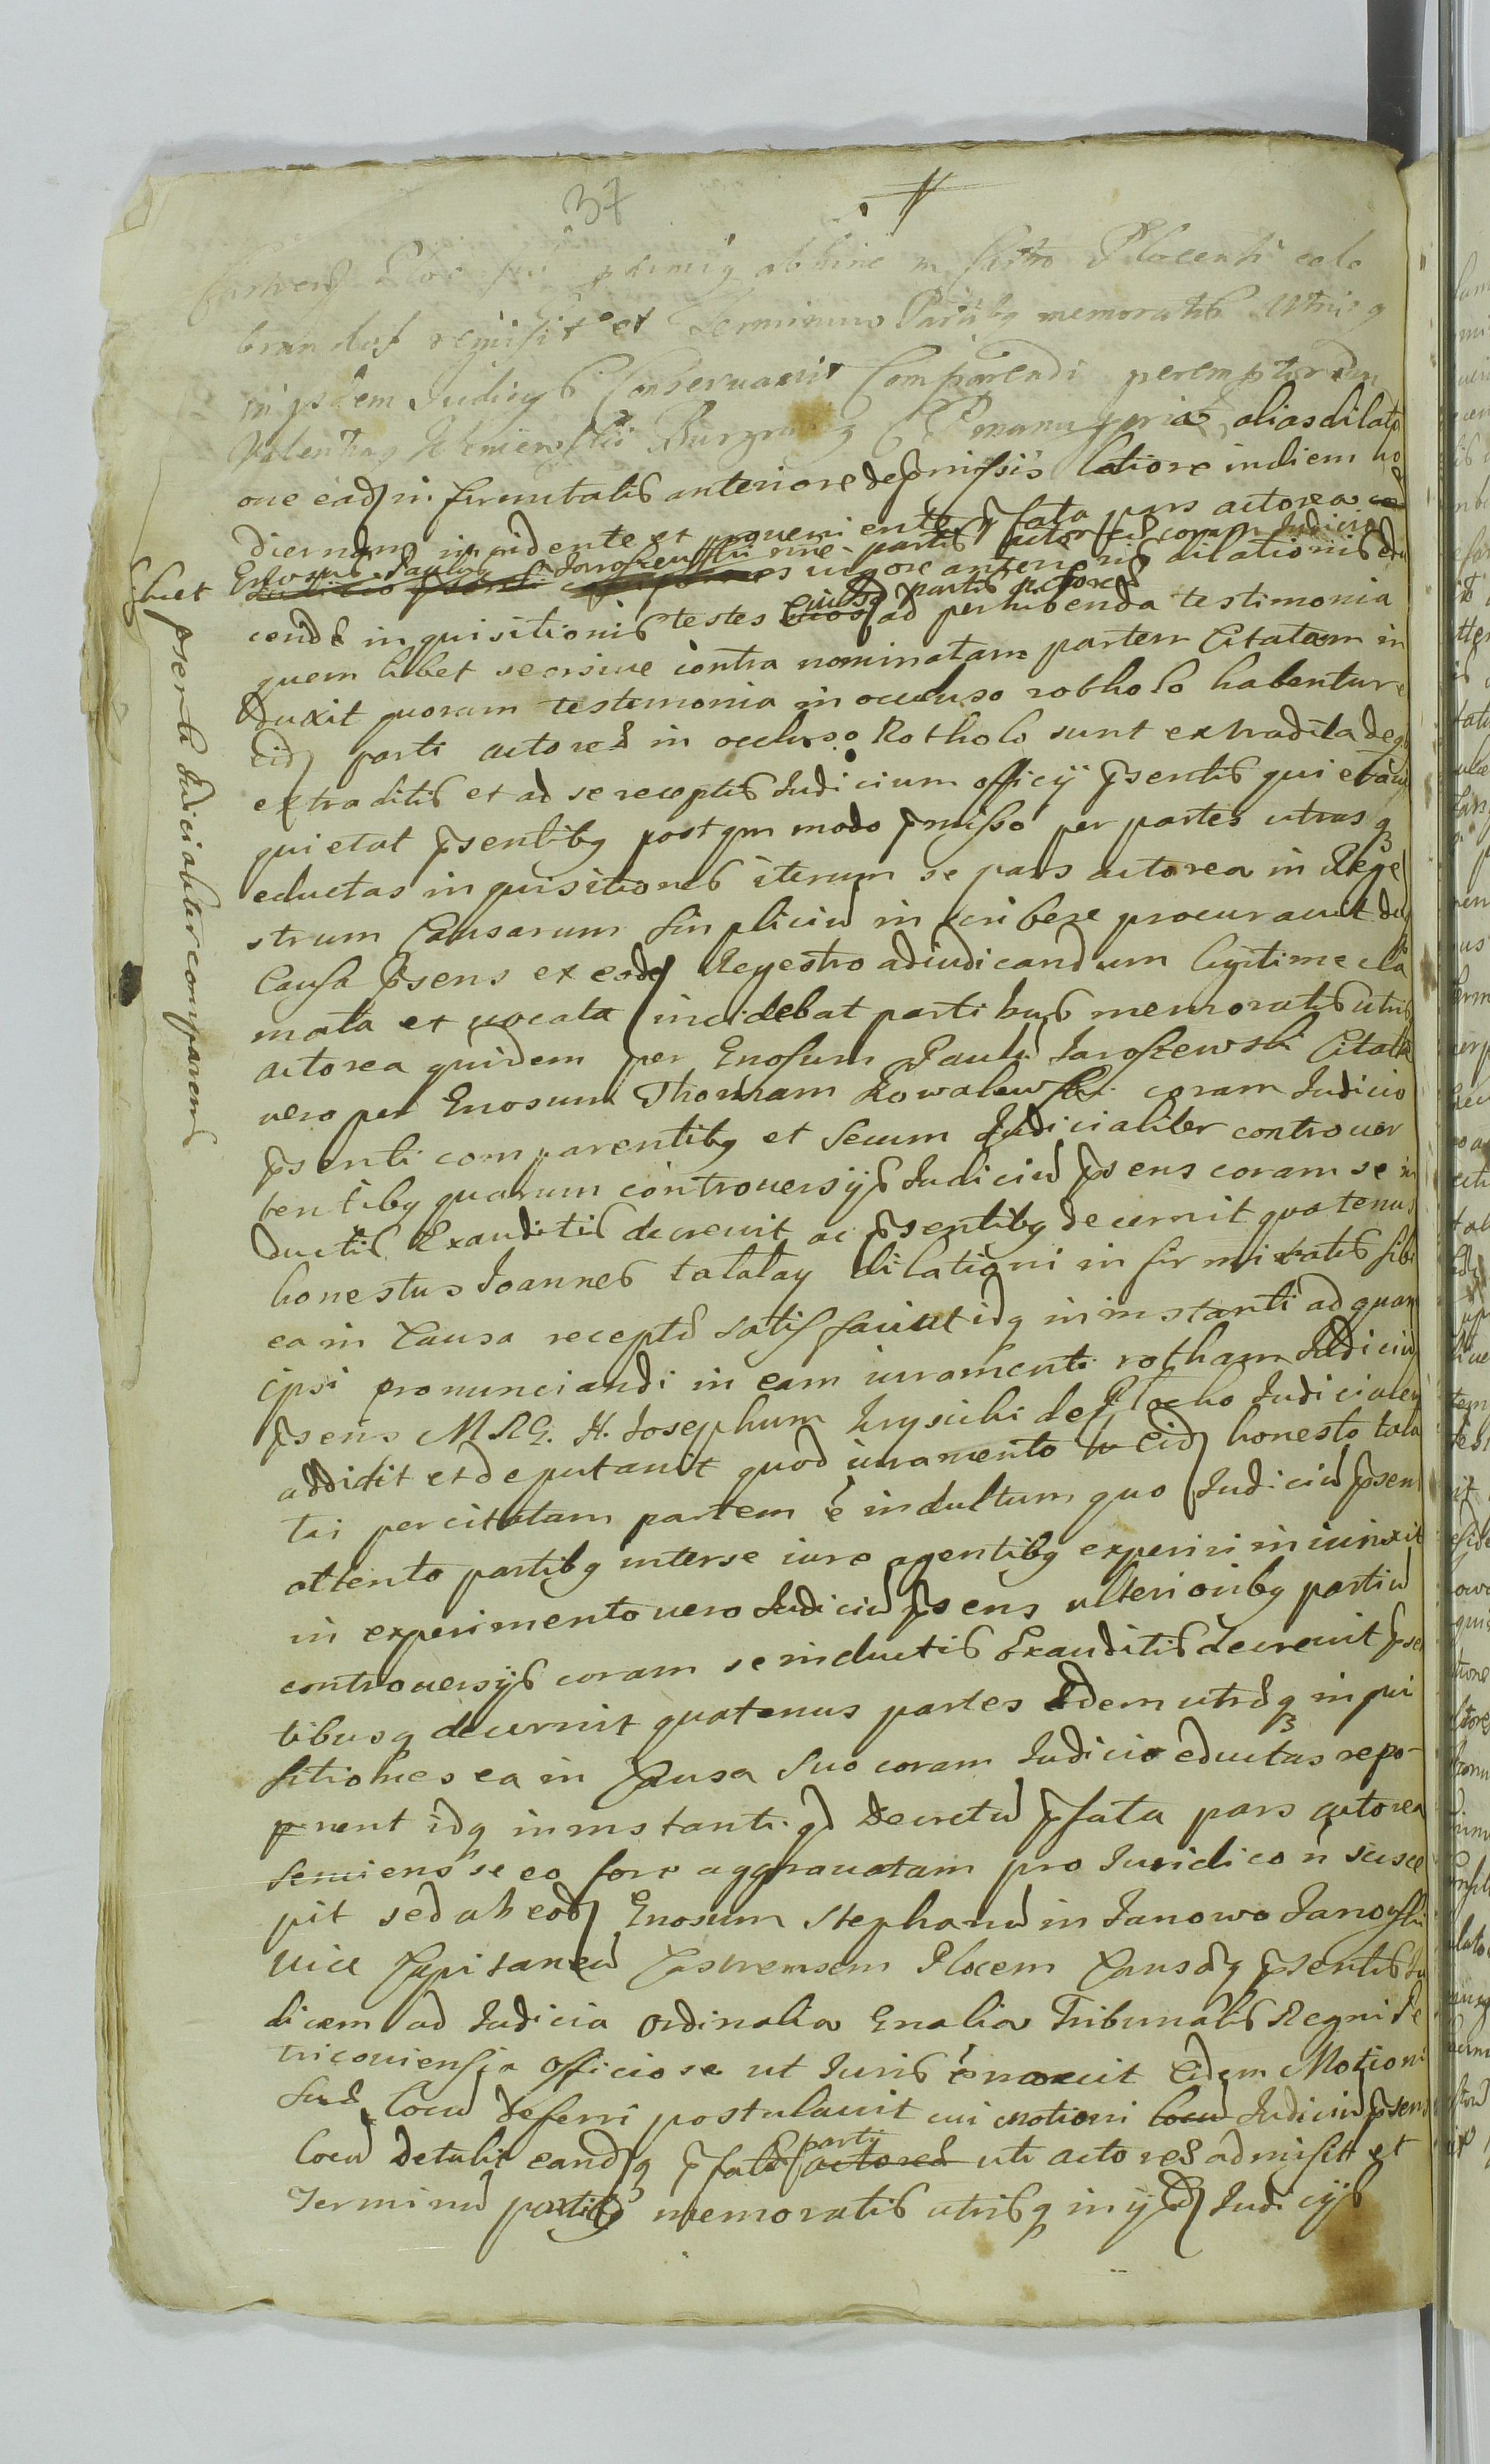 37
abhinc in Castro Plocensi cele
brandas remisit et Terminum Partibq memoratis utrisq
in ijsdem Judicijs Conservavit Comparendi peremptorium
Valentinus Burgrabiq C P manu ppria, alias dilati
one eadem infirmitatis anteriore de pmissis latiore in diem ho
diernam incidente et proueniente pfata pars actorea
Enosus Paulus Jaroszewski nne partis actoreæ coram Judicio
Judicio psenti comparens uigore anterioris dilationis edu
cendæ inquisitionis testes suos eiusd partis actoreæ ad perhibenda testimonia
quem libet seorsiue contra nominatam partem Citatam in
duxit quorum testimonia in occluso rotholo habentur
eid parti actoreæ in occluso Rotholo sunt extradita de q
extraditis et ad se receptis Judicium officij psentis quietauit
quietat psentibq postqm modo pmisso per partes utrasq
eductas inquisitiones iterum se pars actorea in Rege
strum Causarum simpliciu inscribere procurauit du
Causa psens ex eode Regestro adiudicandum legitime cla
mata et uocata incidebat partibus memoratis utris
actorea quidem per Enosum Paulu Jaroszewski Citata
uero per Enosum Thomam Kowalewski coram Judicio
psenti comparentibq et secum Judicialiter controuer
tentibq quarum controuersijs Judiciu psens coram se in
ductis Exauditis decreuit ac psentibq decernit quatenus
honestus Joannes talalay dilationi infirmitatis sibi
ea in Causa receptæ satisfaciat idq in instanti ad quam
ipsi pronunciandi in eam iuramenti rotham Judiciu
psens MRG. H. Josephum de Plocko Judicialem
addidit et deputauit quod iuramento eid honesto tala
lai per citatam partem e indultum quo Judiciu psens
attento partibq inter se iure agentibq experiri iniunxit
in experimento uero Judiciu psens ulterioribq partiu
controuersijs coram se inductis Exauditis decreuit psen
tibusq decernit quatenus partes eædem utræq inqui
sitiones ea in Causa suo coram Judicio eductas repo-
nent idq in instanti. qd Decretu pfata pars actorea
senciens se eo fore aggrauatam pro Juridico n susce
pit sed ab eod Enosum Stephanu in Janowo Janowski
uice Capitaneu Castrensem Plocem Causæq psentis Ju
dicem ad Judicia Ordinalia Gnalia Tribunalis Regni Pe
tricouiensia officiose ut Juris e mouit Eidem Motioni
suæ Locu deferri postulauit cui motioni locu Judiciu psens
Locu detulit eandq pfatæ parti actoreæ uti actoreæ admisit et
Terminu partibq memoratis utrisq in ijsd Judicijs
psenti Judicialiter comparens